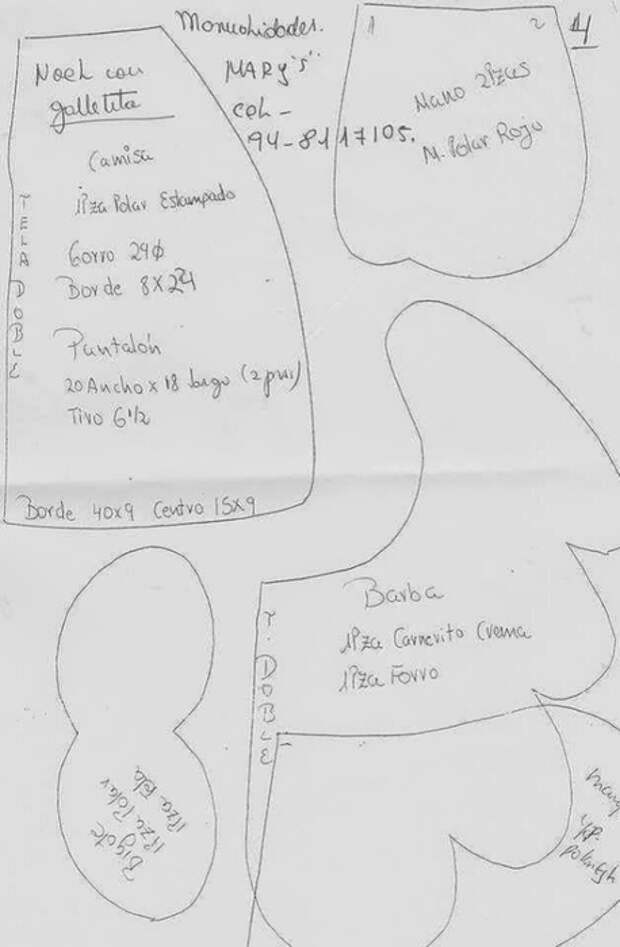 Manualidades.
MARY'S
cel-
94-8117105.
4
Noel con
galletita
Camisa
1Pza Polar Estampado
Gorro 29φ
Borde 8X24
Pantalón
20 Ancho x 18 largo (2
Tiro 6 1/2
Borde 40x9 Centro 15x9
TELA DOBLE
1 2
Mano 2Pzas
M. Polar Rojo
Barba
1Pza Carnerito Crema
1Pza Forro
T. DOBLE
Bigote
1Pza Polar
1Pza Tela